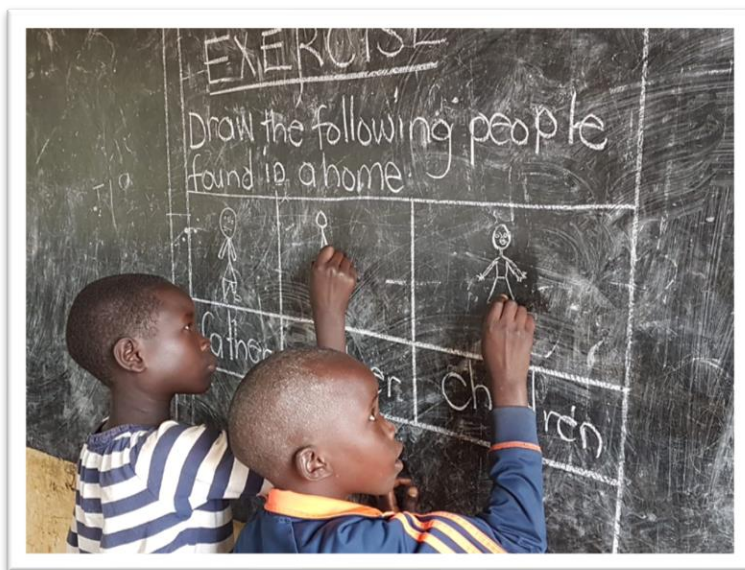 EXERCISE
Draw the following people
found in a home
father children